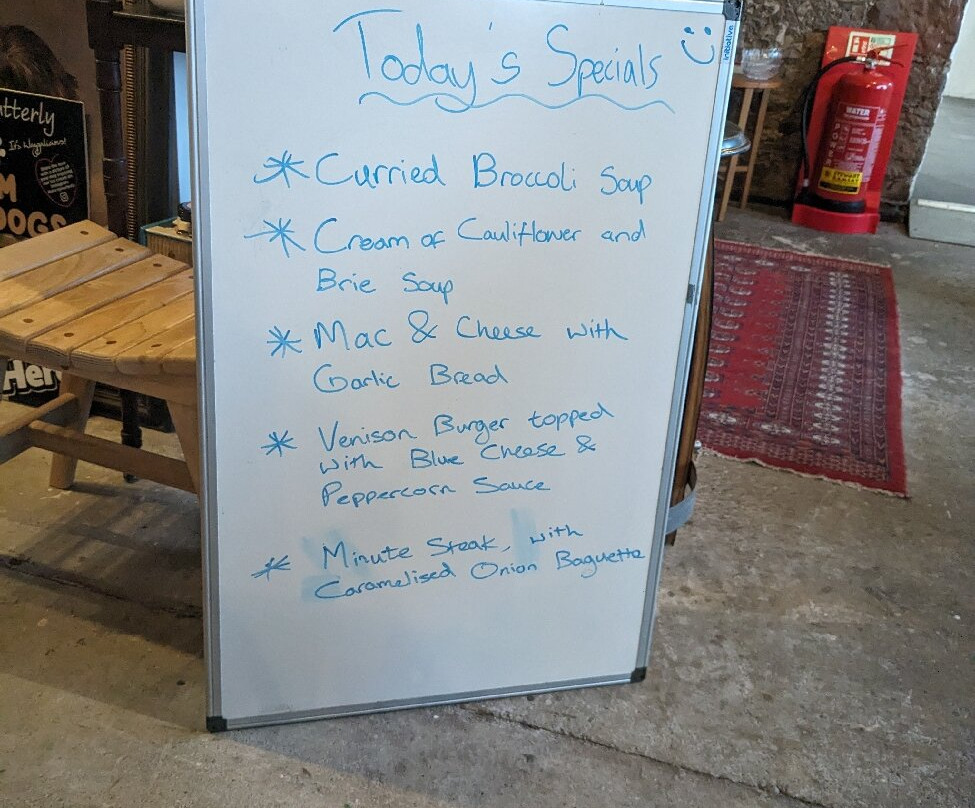 Today's Specials
initiative
* Curried Broccoli Soup
* Cream of Cauliflower and
Brie Soup
* Mac & Cheese with
Garlic Bread
* Venison Burger topped
with Blue Cheese &
Peppercorn Sauce
* Minute Steak, with
Caramelised Onion Baguette
utterly
It's Wagalicious!
M
DOGS
Her
WATER
POWER
STEWART